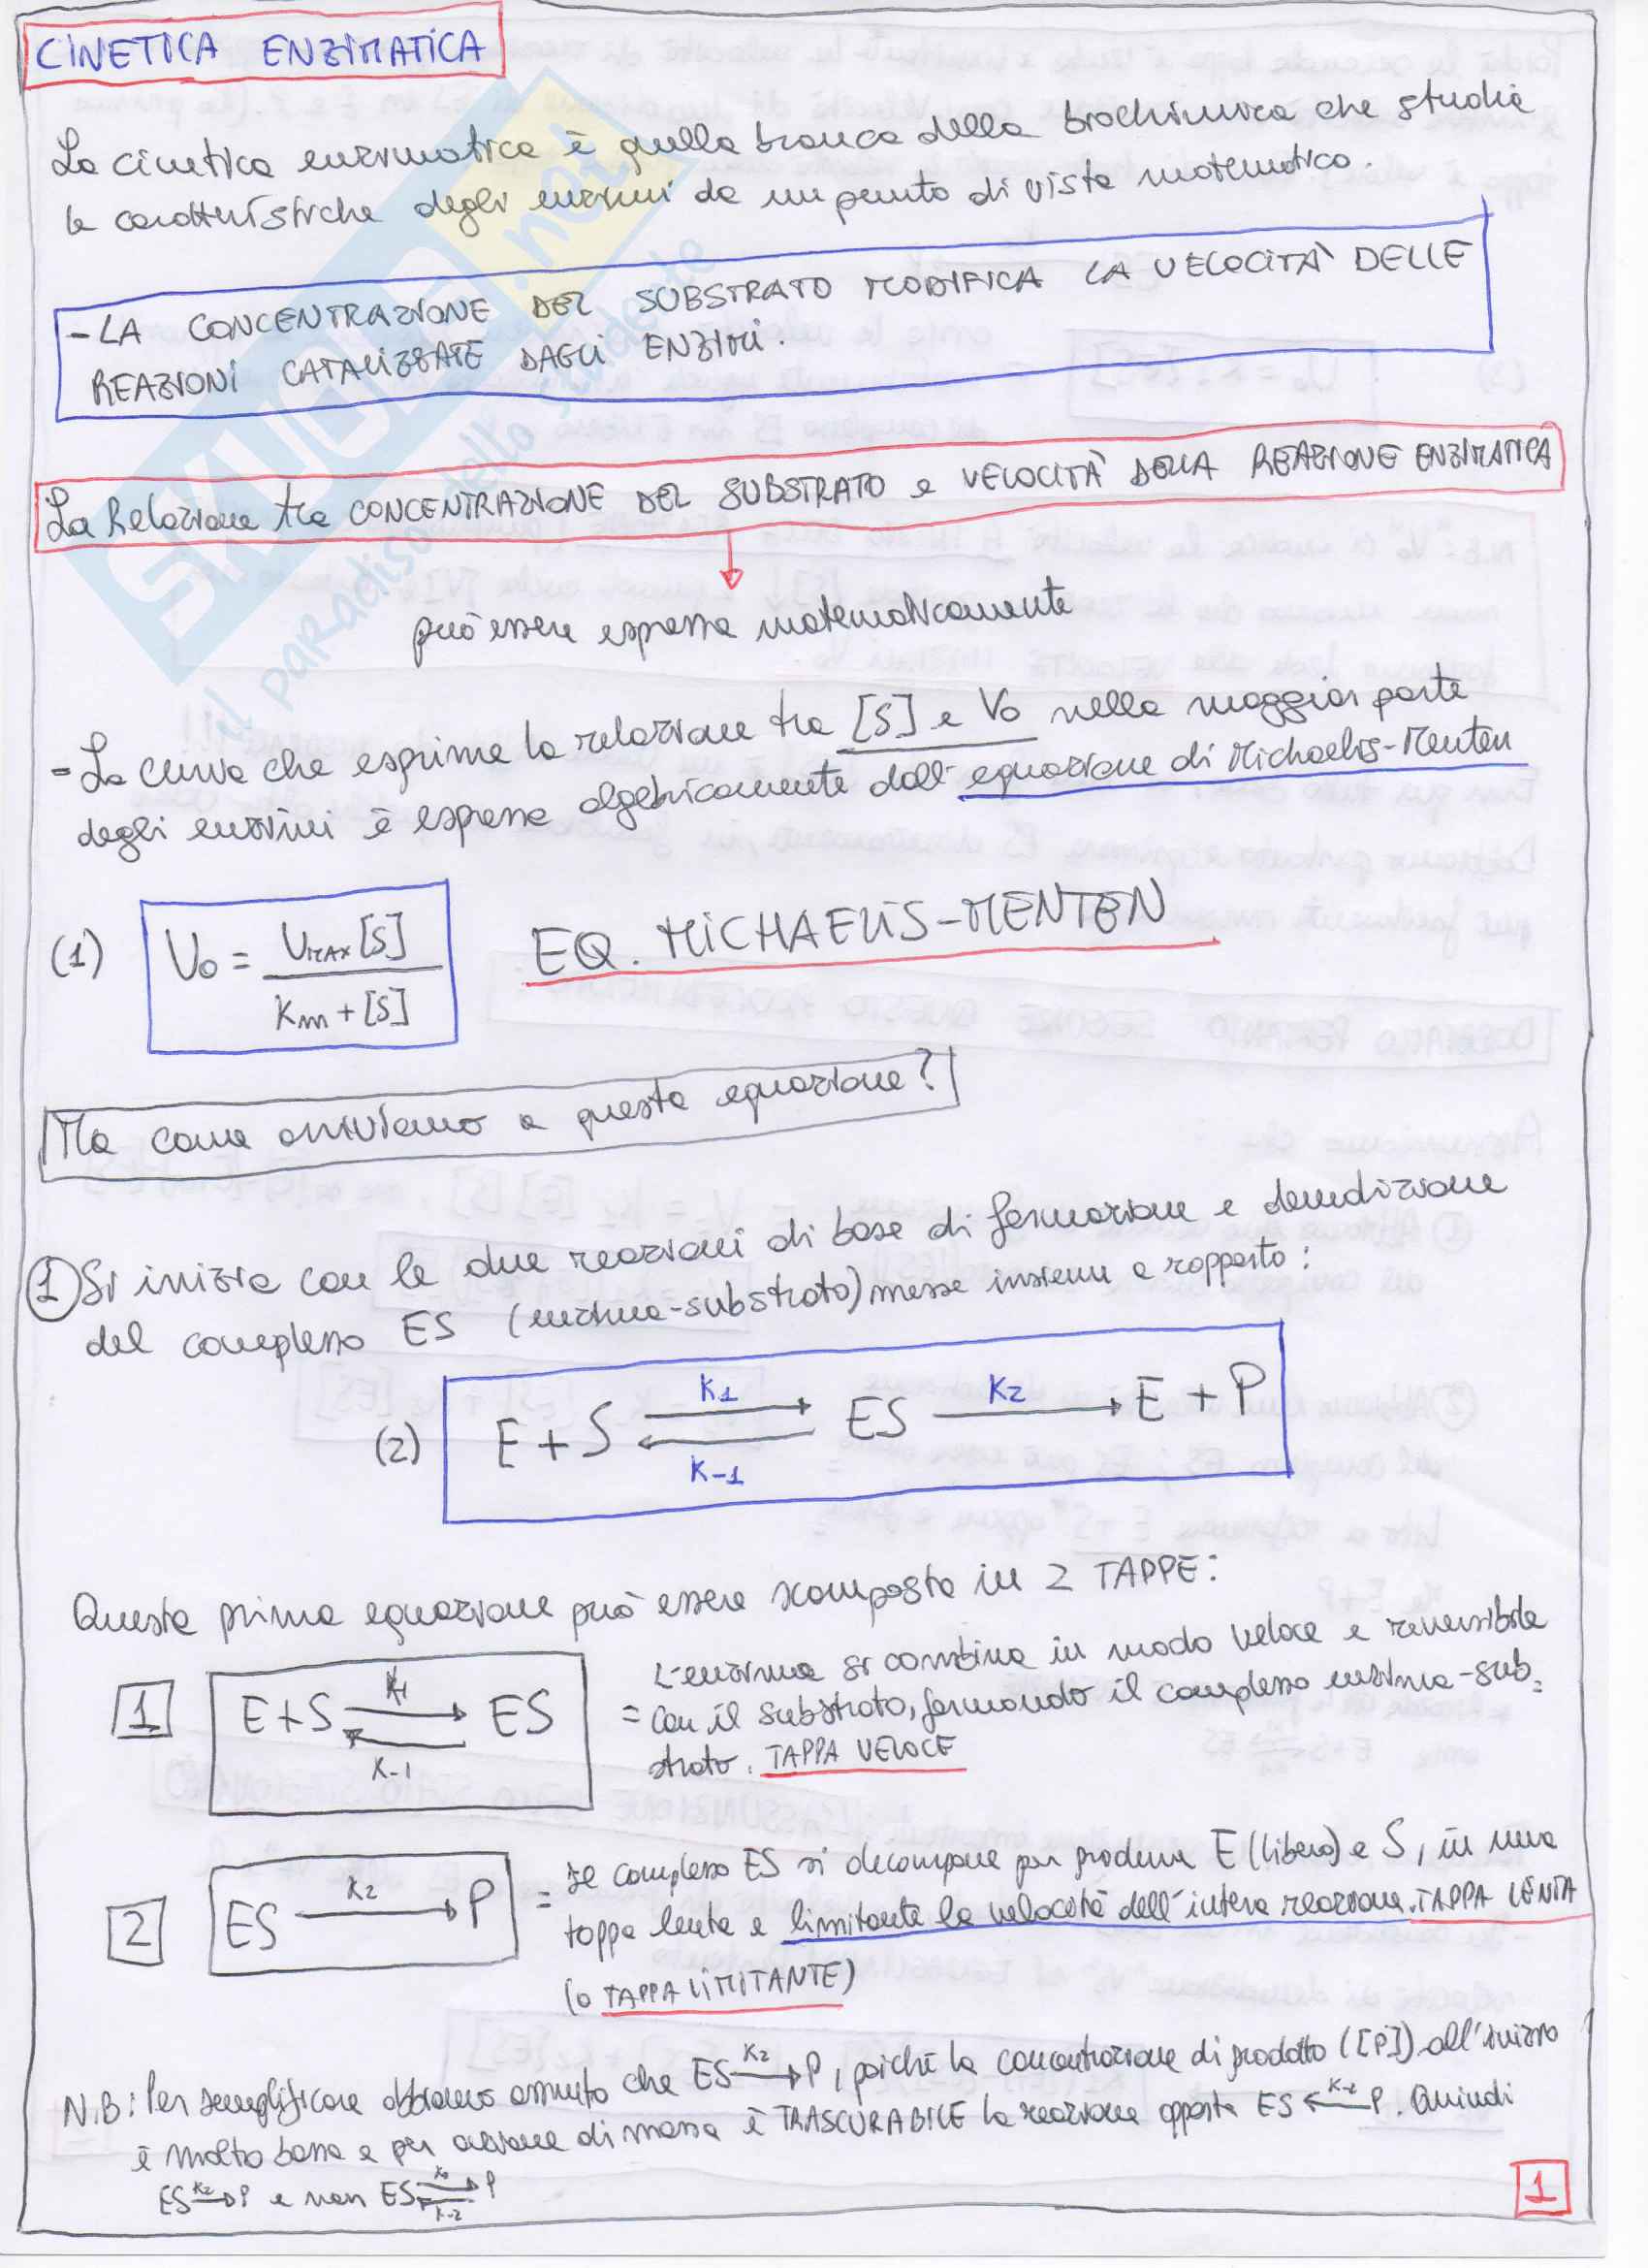 CINETICA ENZIMATICA
La cinetica enzimatica è quella branca della biochimica che studia
le caratteristiche degli enzimi da un punto di vista matematico.
- LA CONCENTRAZIONE DEL SUBSTRATO MODIFICA LA VELOCITÀ DELLE
REAZIONI CATALIZZATE DAGLI ENZIMI.
La Relazione tra CONCENTRAZIONE DEL SUBSTRATO e VELOCITÀ DELLA REAZIONE ENZIMATICA
può essere espressa matematicamente
- La curva che esprime la relazione tra [S] e V0 nella maggior parte
degli enzimi è espressa algebricamente dall'equazione di Michaelis-Menten
(1) V0 = VMAX [S] / Km + [S] EQ. MICHAELIS-MENTEN
Ma come arriviamo a questa equazione?
① Si inizia con le due reazioni di base di formazione e demolizione
del complesso ES (enzima-substrato) messe insieme a rapporto:
(2) E + S ⇄ ES → E + P
K1 K2
K-1
Questa prima equazione può essere scomposta in 2 TAPPE:
1 E+S ⇄ ES
K1
K-1
L'enzima si combina in modo veloce e reversibile
= con il substrato, formando il complesso enzima-sub=
strato. TAPPA VELOCE
2 ES →K2 P = Il complesso ES si decompone per produrre E (libero) e S, in una
tappa lenta e limitante la velocità dell'intera reazione. TAPPA LENTA
(o TAPPA LIMITANTE)
N.B: Per semplificare abbiamo assunto che ES →K2 P, poiché la concentrazione di prodotto ([P]) all'inizio
è molto bassa e per azione di massa è TRASCURABILE la reazione opposta ES ←K-2 P. Quindi
ES →K2 P e non ES ⇄ P
K-2
1
SKUOLA.net
il paradiso dello studente